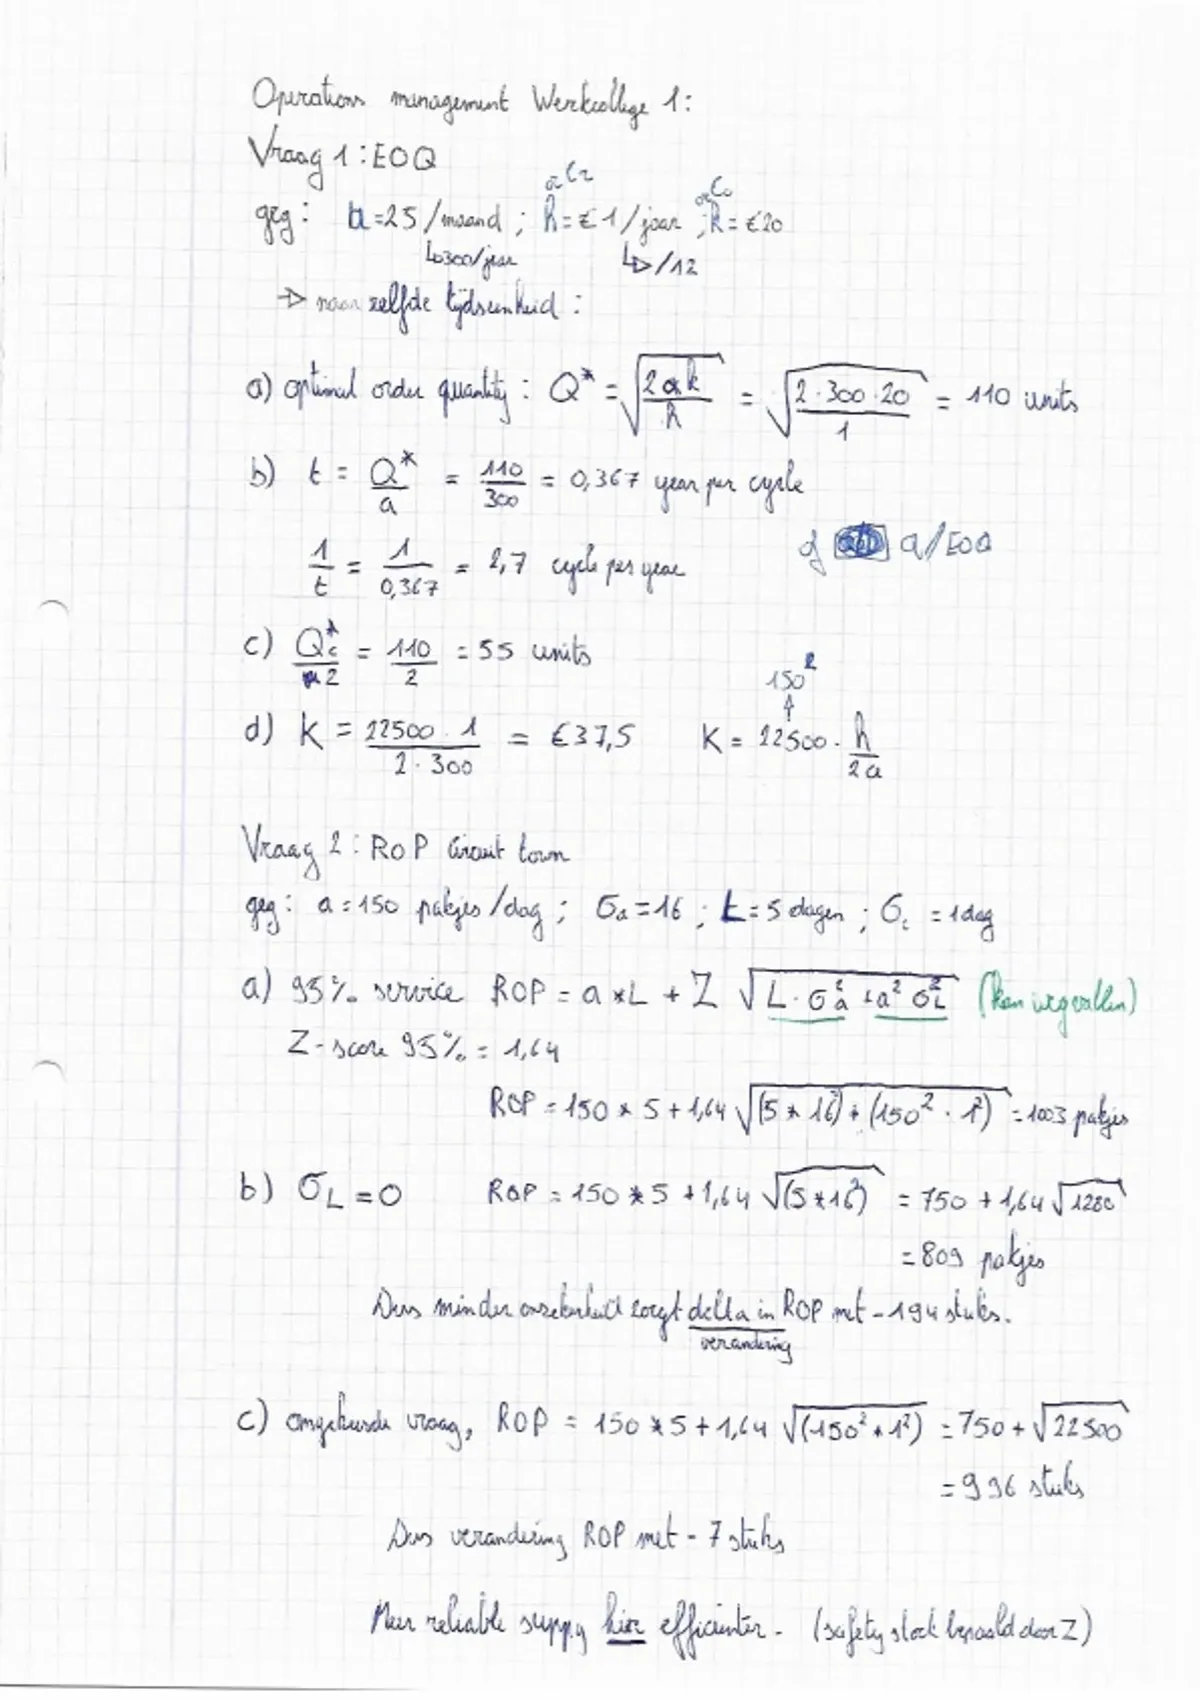 Operations management Werkcollege 1:
Vraag 1 : EOQ
geg: a=25/maand ; h = €1/jaar ; k = €20
of Cr of Co
↳300/jaar ↳/12
→ naar zelfde tijdseenheid :
a) optimal order quantity : Q* = √(2ak/h) = √(2·300·20/1) = 110 units
b) t = Q*/a = 110/300 = 0,367 year per cycle
of a/EOQ
1/t = 1/0,367 = 2,7 cycle per year
c) Q*c/2 = 110/2 = 55 units
150²
↑
d) K = 22500·1/2·300 = €37,5 K = 22500·h/2a
Vraag 2 : ROP Circuit town
geg : a = 150 pakjes/dag ; σa = 16 ; L = 5 dagen ; σL = 1 dag
a) 95% service ROP = a*L + Z √(L·σa² + a² σL²) (kan wegvallen)
Z-score 95% = 1,64
ROP = 150 * 5 + 1,64 √((5 * 16²) + (150² · 1²)) = 1003 pakjes
b) σL = 0 ROP = 150 * 5 + 1,64 √(5*16²) = 750 + 1,64 √1280
= 809 pakjes
Dus minder onzekerheid zorgt delta in ROP met -194 stuks.
verandering
c) omgekeerde vraag, ROP = 150 * 5 + 1,64 √(150² * 1²) = 750 + √22500
= 996 stuks
Dus verandering ROP met - 7 stuks
Meer reliable supply hier efficiënter. (safety stock bepaald door Z)